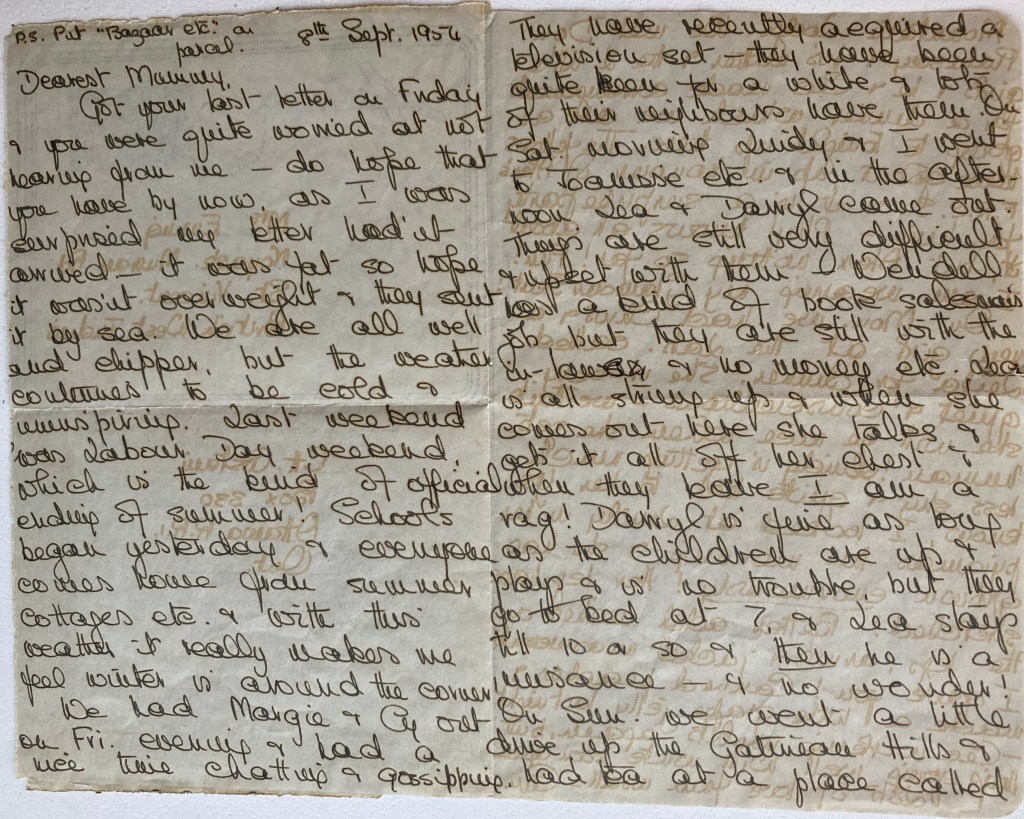 P.S. Put "Bazaar etc." on
parcel.
8th Sept. 1954
Dearest Mummy,
Got your last letter on Friday
& you were quite worried at not
hearing from me — do hope that
you have by now, as I was
surprised my letter had'nt
arrived — it was fat so hope
it was'nt overweight & they sent
it by sea. We are all well
and chipper, but the weather
continues to be cold &
uninspiring. Last weekend
was Labour Day weekend,
which is the kind of official
ending of summer! Schools
began yesterday & everyone
comes home from summer
cottages etc. & with this
weather it really makes me
feel winter is around the corner
We had Margie & Cy out
on Fri. evening & had a
nice time chatting & gossipping.
They have recently acquired a
television set — they have been
quite keen for a while & lots
of their neighbours have them. On
Sat. morning Lindy & I went
to etc. & in the after-
noon Lea & Darryl came out.
Things are still very difficult
& upset with them — Wendell
has a kind of book salesman's
job but they are still with the
in-laws & no money etc. Lea
is all strung up & when she
comes out here she talks &
gets it all off her chest &
when they leave I am a
rag! Darryl is fine as long
as the children are up &
play & is no trouble, but they
go to bed at 7, & Lea stays
till 10 or so & then he is a
nuisance — & no wonder!
On Sun. we went a little
drive up the Gatineau Hills &
had tea at a place called